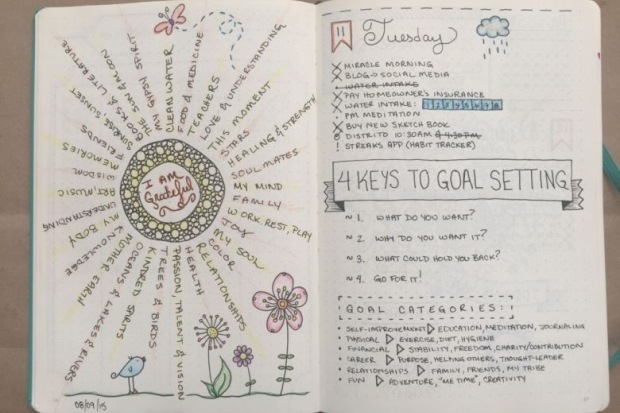 I AM
Grateful
CLEAN WATER
FOOD & MEDICINE
TEACHERS
LOVE & UNDERSTANDING
THIS MOMENT
STARS
HEALING & STRENGTH
SOUL MATES
MY MIND
FAMILY
WORK, REST, PLAY
JOY
MY SOUL
COLOR
RELATIONSHIPS
HEALTH
PASSION, TALENT & VISION
TREES & BIRDS
KINDRED SPIRITS
OCEANS & LAKES & RIVERS
MOTHER EARTH
KNOWLEDGE
MY BODY
UNDERSTANDING
ART, MUSIC
WISDOM
MEMORIES
FRIENDS
SUNRISE, SUNSET
BOOKS & LITERATURE
THE SUN & MOON
MY GYPSY SPIRIT
08/09/15
11
Tuesday
MIRACLE MORNING
BLOG → SOCIAL MEDIA
WATER INTAKE
PAY HOMEOWNER'S INSURANCE
WATER INTAKE: 1 2 3 4 5 6 7 8
PM MEDITATION
BUY NEW SKETCH BOOK
DISTRITO 10:30AM & 4:30PM
! STREAKS APP (HABIT TRACKER)
4 KEYS TO GOAL SETTING
~ 1. WHAT DO YOU WANT?
~ 2. WHY DO YOU WANT IT?
~ 3. WHAT COULD HOLD YOU BACK?
~ 4. GO FOR IT!
GOAL CATEGORIES:
• SELF-IMPROVEMENT ▷ EDUCATION, MEDITATION, JOURNALING
• PHYSICAL ▷ EXERCISE, DIET, HYGIENE
• FINANCIAL ▷ STABILITY, FREEDOM, CHARITY/CONTRIBUTION
• CAREER ▷ PURPOSE, HELPING OTHERS, THOUGHT-LEADER
• RELATIONSHIPS ▷ FAMILY, FRIENDS, MY TRIBE
• FUN ▷ ADVENTURE, "ME TIME", CREATIVITY